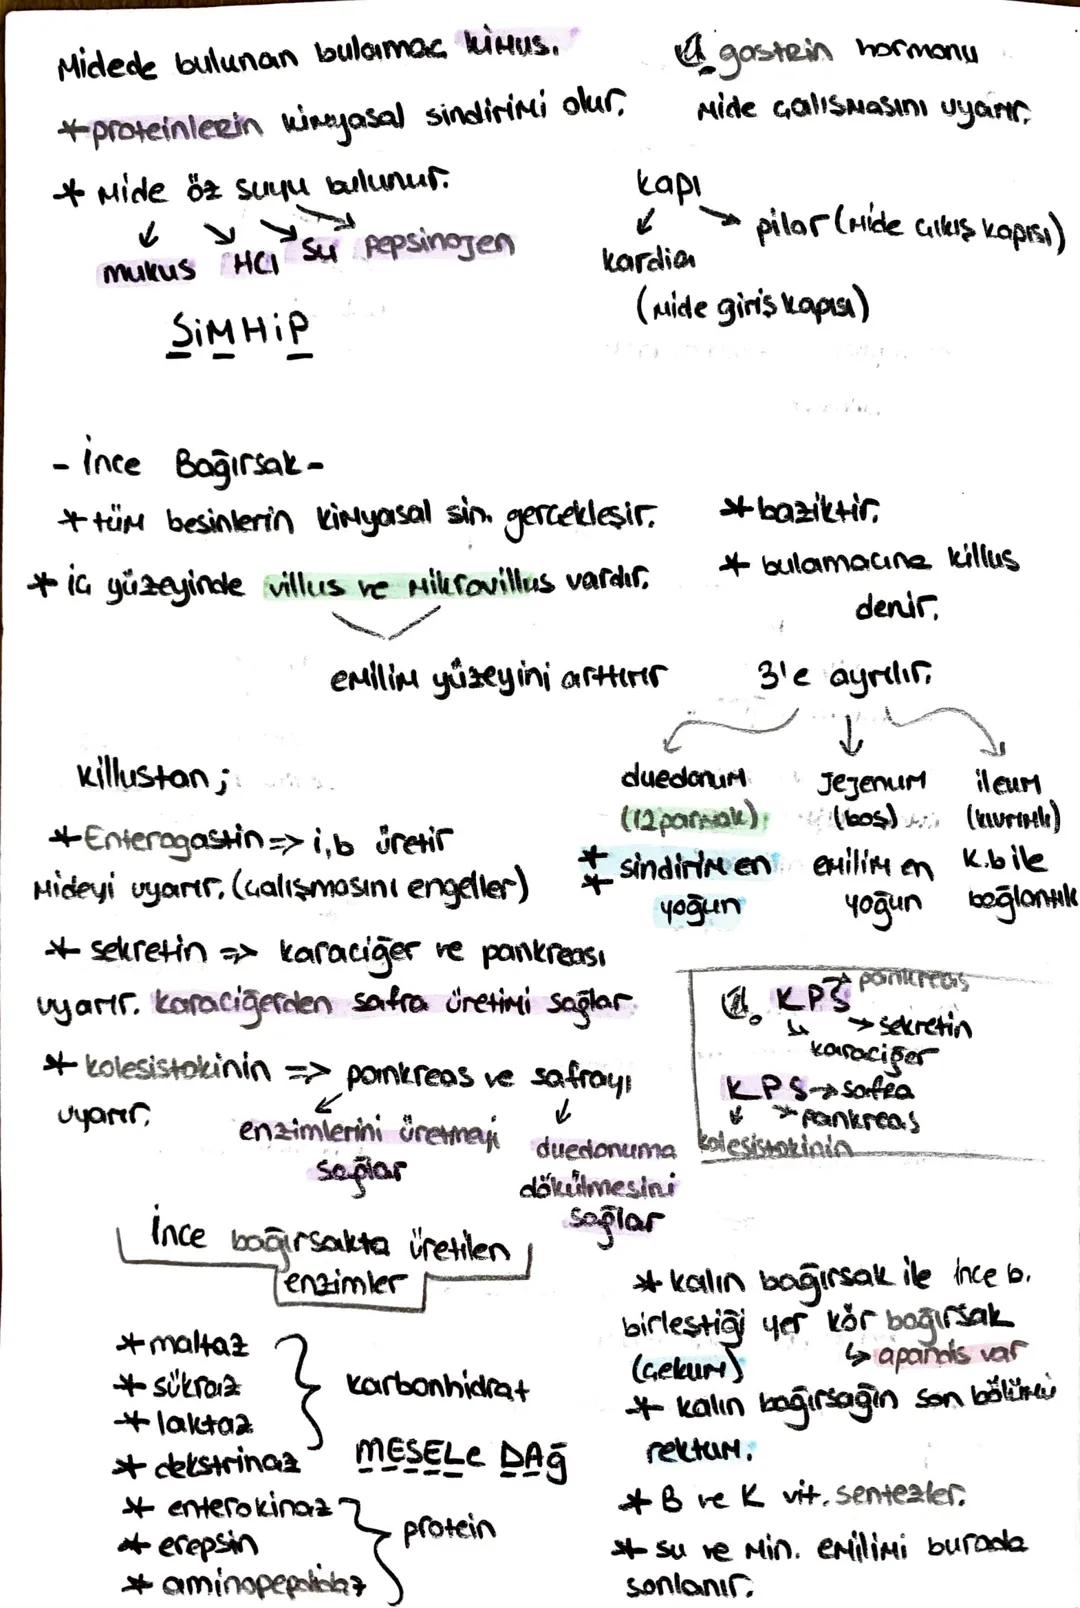 Midede bulunan bulamaç kimus.
*proteinlerin kimyasal sindirimi olur.
* Mide öz suyu bulunur.
mukus HCl su pepsinojen
SiMHiP
gastrin hormonu
Mide çalışmasını uyarır.
kapı
pilor (Mide çıkış kapısı)
kardia
(Mide giriş kapısı)
- İnce Bağırsak -
* tüm besinlerin kimyasal sin. gerçekleşir.
* iç yüzeyinde villus ve mikrovillus vardır.
emilim yüzeyini arttırır
* baziktir.
* bulamacına killus
denir.
3'e ayrılır.
duedonum
(12 parmak)
** sindirim en
yoğun
Jejenum
(boş)
emilim en
yoğun
ileum
(kıvrımlı)
K.b ile
bağlantılı
killustan ;
* Enterogastin => i,b üretir
Mideyi uyarır. (çalışmasını engeller)
* sekretin => karaciğer ve pankreası
uyarır. karaciğerden safra üretimi sağlar.
* kolesistokinin => pankreas ve safrayı
uyarır.
enzimlerini üretmeyi
sağlar
duedonuma
dökülmesini
sağlar
KPS → pankreas
→ sekretin
karaciğer
KPS → safra
→ pankreas
kolesistokinin
İnce bağırsakta üretilen
enzimler
* maltaz
* sükraz
* laktaz
* dekstrinaz
karbonhidrat
MESELe DAĞ
* enterokinaz
* erepsin
* aminopeptidaz
protein
* kalın bağırsak ile ince b.
birleştiği yer kör bağırsak
(çekum) ↳ apandis var
* kalın bağırsağın son bölümü
rektum.
* B ve K vit. sentezler.
* su ve Min. emilimi burada
sonlanır.